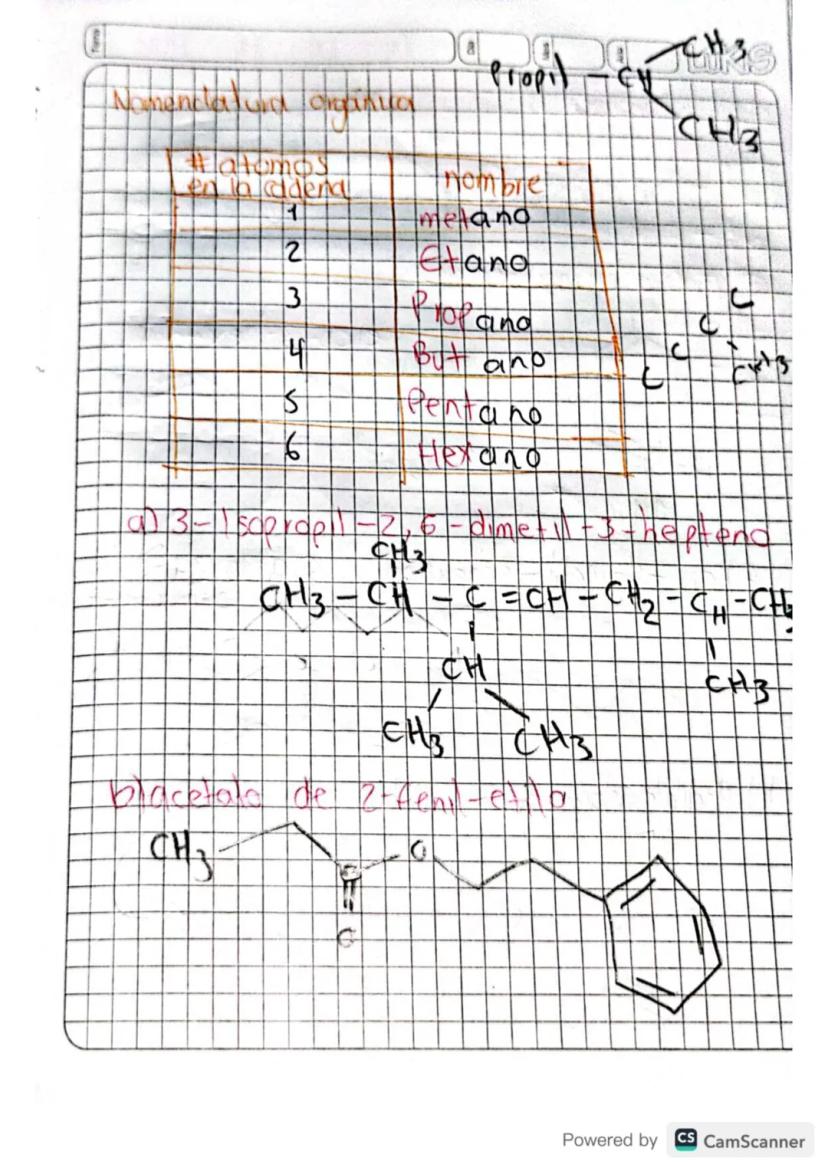 Propil - CH
CH3
CH3
Nomenclatura orgánica
# atomos en la cadena nombre
1 metano
2 Etano
3 Propano
4 Butano
5 Pentano
6 Hexano
C
C
C
C
CH3
a) 3-Isopropil-2,6-dimetil-3-hepteno
CH3
CH3 - CH - C = CH - CH2 - CH - CH3
CH
CH3
CH3 CH3
b) acetato de 2-fenil-etilo
CH3
C
O
O
Powered by CS CamScanner